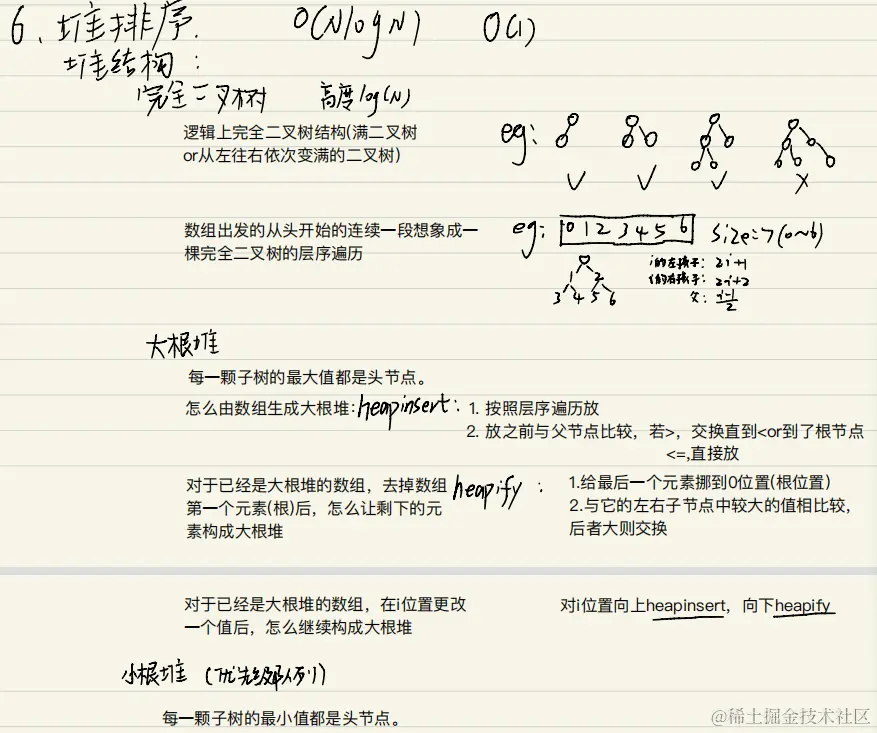 6、堆排序. O(NlogN) O(1)
堆结构:
完全二叉树 高度log(N)
逻辑上完全二叉树结构(满二叉树
or从左往右依次变满的二叉树)
eg:
数组出发的从头开始的连续一段想象成一
棵完全二叉树的层序遍历
eg: 0 1 2 3 4 5 6 size=7(0~6)
1 2
3 4 5 6
i的左孩子: 2i+1
i的右孩子: 2i+2
父: i-1/2
大根堆
每一颗子树的最大值都是头节点。
怎么由数组生成大根堆: heapinsert: 1. 按照层序遍历放
2. 放之前与父节点比较，若>，交换直到<or到了根节点
<=,直接放
对于已经是大根堆的数组，去掉数组
第一个元素(根)后，怎么让剩下的元
素构成大根堆
heapify :
1.给最后一个元素挪到0位置(根位置)
2.与它的左右子节点中较大的值相比较，
后者大则交换
对于已经是大根堆的数组，在i位置更改
一个值后，怎么继续构成大根堆
对i位置向上heapinsert，向下heapify
小根堆 (优先级队列)
每一颗子树的最小值都是头节点。
@稀土掘金技术社区